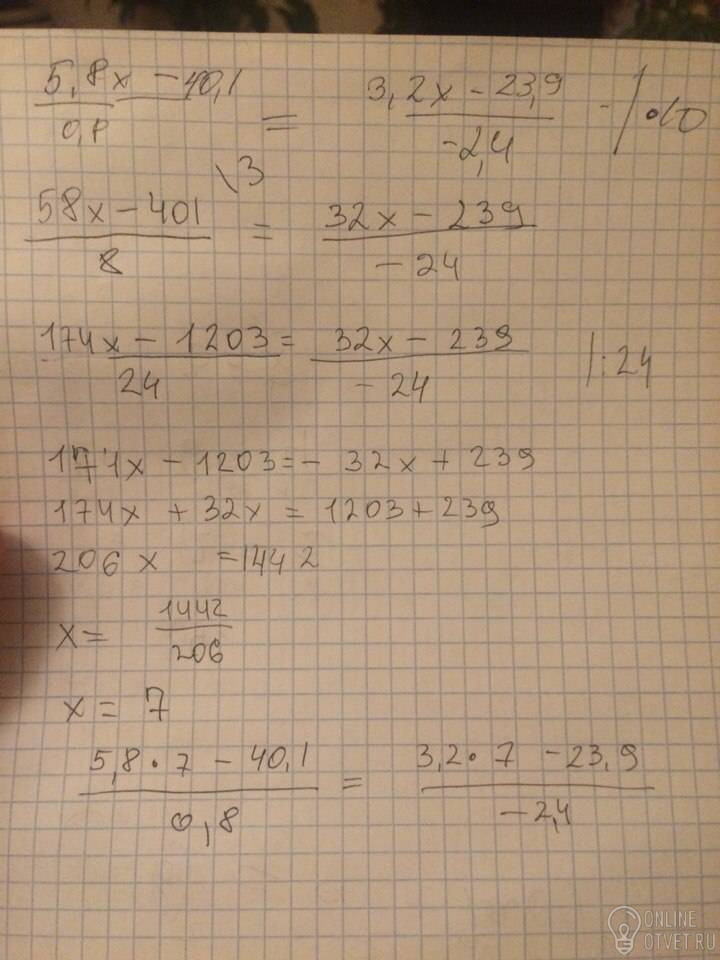 5,8x - 40,1 / 0,8 = 3,2x - 23,9 / -2,4 - / •10
\3
58x - 401 / 8 = 32x - 239 / - 24
174x - 1203 / 24 = 32x - 239 / - 24 /:24
174x - 1203 = - 32x + 239
174x + 32x = 1203 + 239
206x = 1442
x = 1442 / 206
x = 7
5,8 • 7 - 40,1 / 0,8 = 3,2 • 7 - 23,9 / - 2,4
ONLINE
OTVET.RU